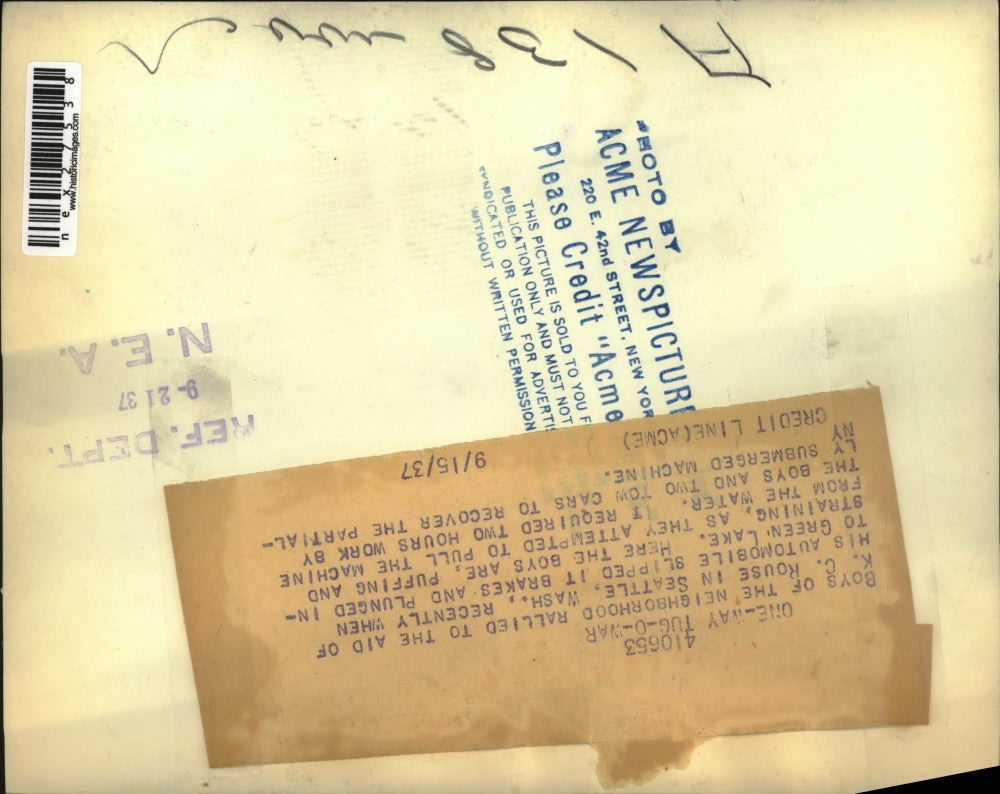 n e x 2 7 5 3 8
www.historicimages.com
PHOTO BY
ACME NEWSPICTUR
220 E. 42nd STREET, NEW YOR
Please Credit "Acme
THIS PICTURE IS SOLD TO YOU F
PUBLICATION ONLY AND MUST NOT
SYNDICATED OR USED FOR ADVERTI
WITHOUT WRITTEN PERMISSION
REF. DEPT.
9-21 37
N. E. A.
410653
ONE-WAY TUG-O-WAR
BOYS OF THE NEIGHBORHOOD RALLIED TO THE AID OF
K. C. ROUSE IN SEATTLE, WASH., RECENTLY WHEN
HIS AUTOMOBILE SLIPPED IT BRAKES AND PLUNGED IN-
TO GREEN LAKE. HERE THE BOYS ARE, PUFFING AND
STRAINING, AS THEY ATTEMPTED TO PULL THE MACHINE
FROM THE WATER. IT REQUIRED TWO HOURS WORK BY
THE BOYS AND TWO TOW CARS TO RECOVER THE PARTIAL-
LY SUBMERGED MACHINE.
NY
CREDIT LINE(ACME) 9/15/37